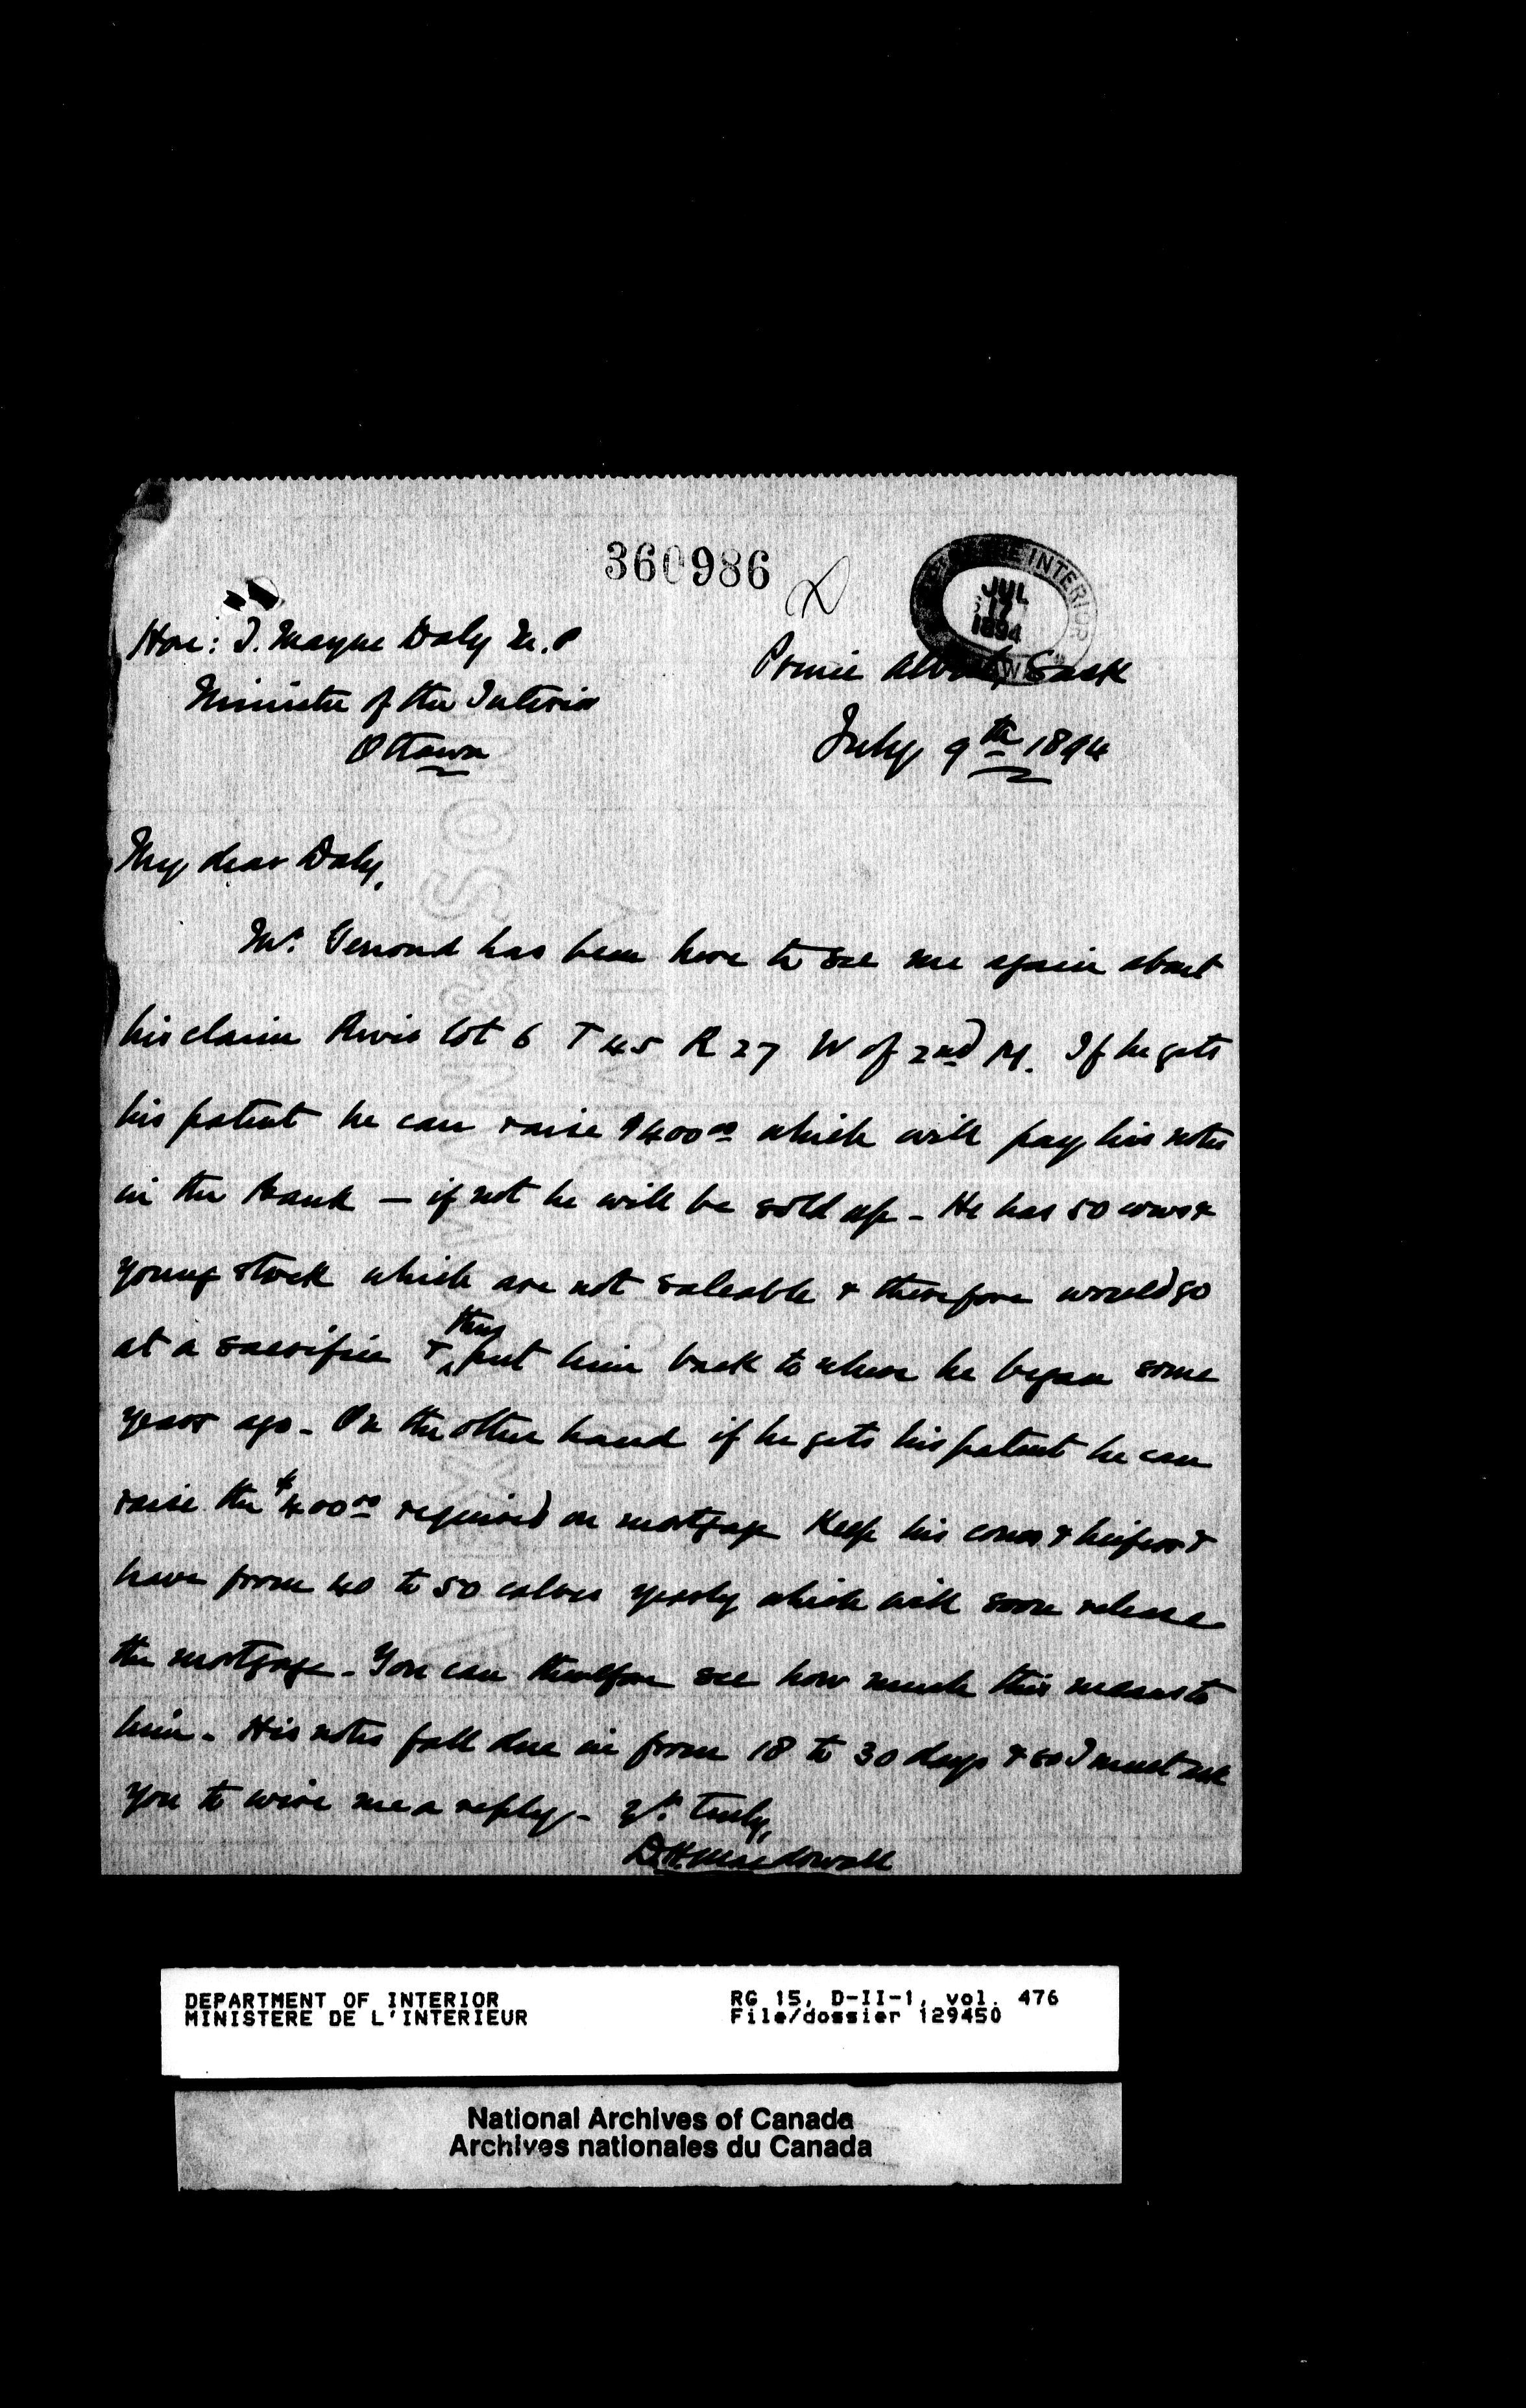 360986
DEPARTMENT OF THE INTERIOR
JUL
17
1894
OTTAWA
Hon: T. Mayne Daly M.P
Minister of the Interior
Ottawa
Prince Albert, Sask
July 9th 1894
My dear Daly,
Mr. has been here to see me again about
his claim River Lot 6 T 45 R 27 W of 2nd M. If he gets
his patent he can raise $400 00 which will pay his notes
in the Bank — if not he will be sold up - He has 50 cows &
young stock which are not saleable & therefore would go
at a sacrifice & thus put him back to where he began some
years ago - On the other hand if he gets his patent he can
raise the $400 00 required on mortgage Keep his cows & heifers &
have from 40 to 50 calves yearly which will soon release
the mortgage - You can therefore see how much this means to
him - His notes fall due in from 18 to 30 days & so I must ask
you to wire me a reply - Yrs. truly,
D H Macdowall
ALEX. COWAN & SONS
QUALITY
DEPARTMENT OF INTERIOR
MINISTERE DE L'INTERIEUR
RG 15, D-II-1, vol. 476
File/dossier 129450
National Archives of Canada
Archives nationales du Canada